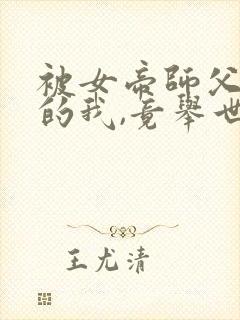 被女帝師父
的我,竟舉世
王尤清